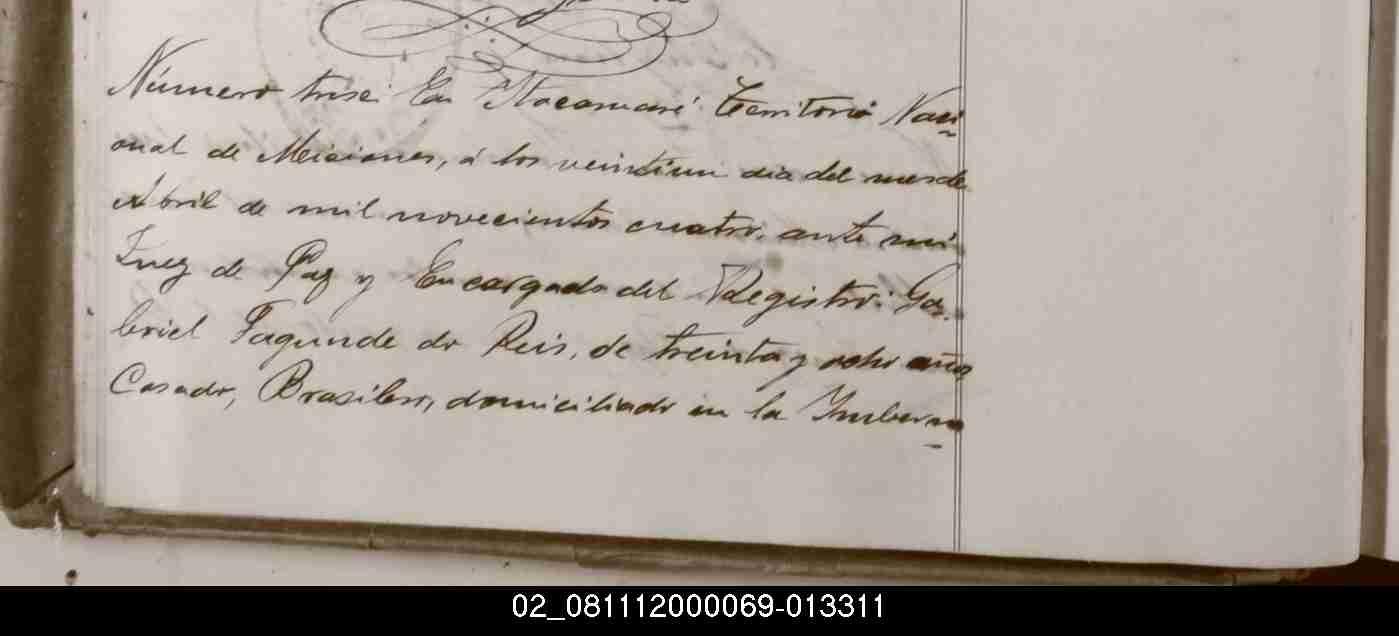 Número trese En Itacaruaré Territorio Naci
onal de Miciones, á los veintiun dia del mes de
Abril de mil novecientos cuatro, ante mi
Juez de Paz y Encargado del Registro: Ga-
briel Fagunde do Reis, de treinta y ocho años
Casado, Brasilero, domiciliado en la
02_081112000069-013311